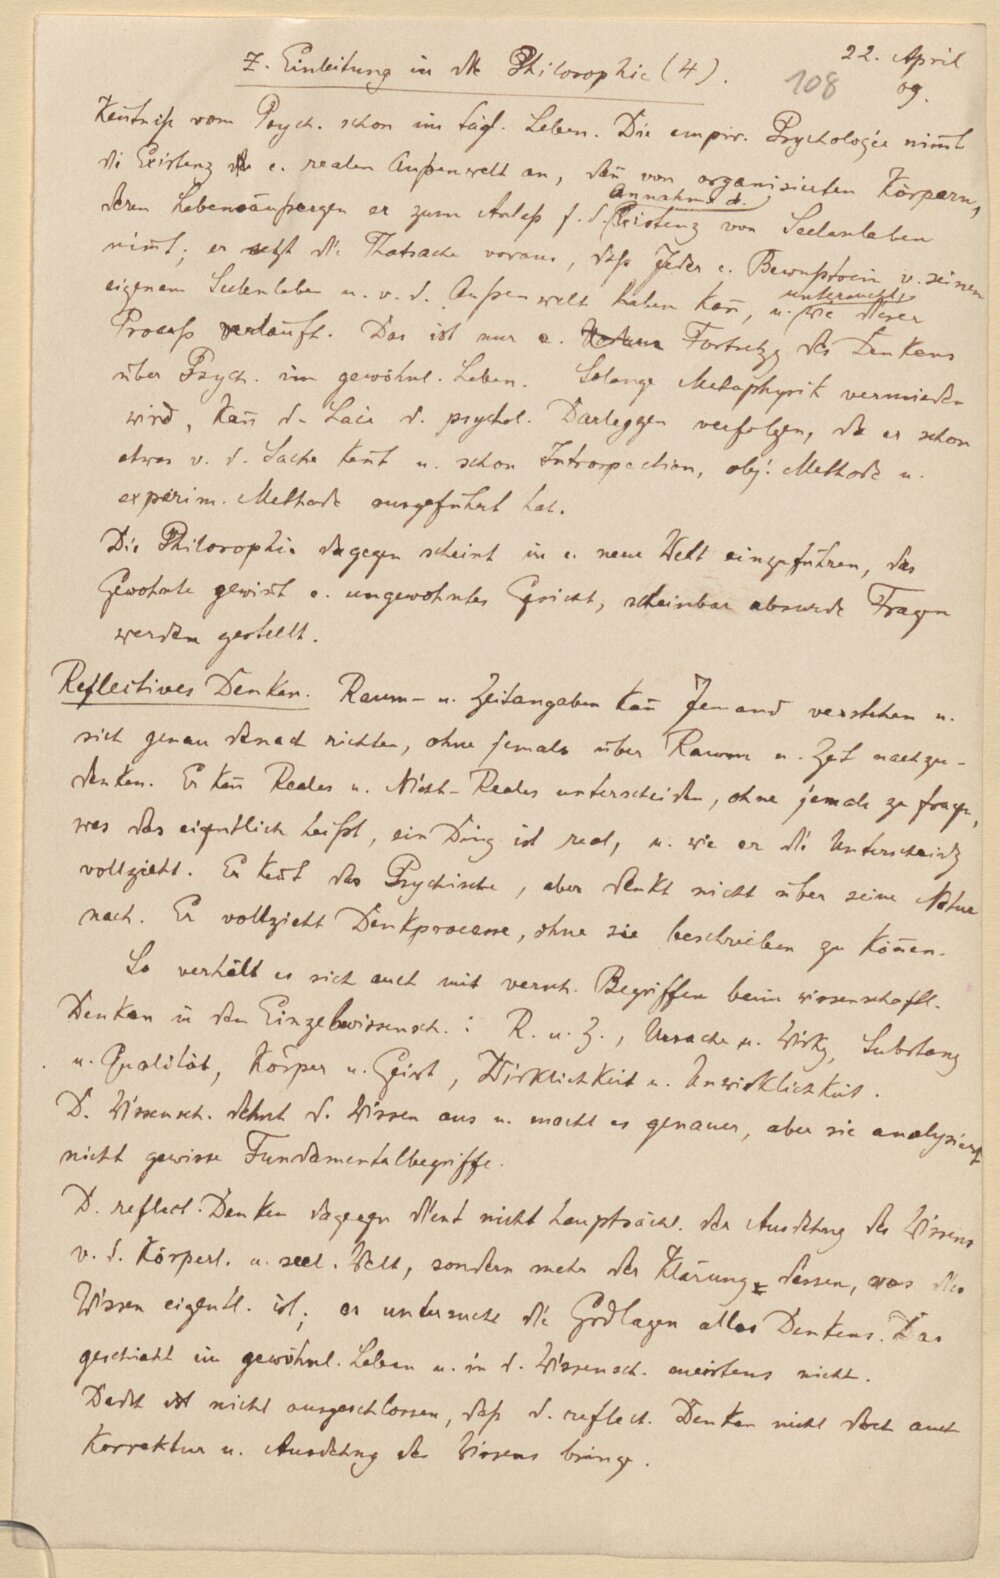 22. April
Z. Einleitung in die Philosophie (4).
108
09.
Keñtniß vom Psych. schon im tägl. Leben. Die empir. Psychologie nim̄t
die Existenz e. realen Außenwelt an, dañ von organisierten Körpern,
Annahme d.
deren Lebensäußergen er zum Anlaß f. d. Existenz von Seelenleben
nim̄t; er setzt die Thatsache voraus, daß Jeder e. Bewußtsein v. seinem
eigenem Seelenleben u. v. d. Außenwelt haben kañ, u. wie dieser
untersucht,
Proceß verläuft. Das ist nur e. Fortsetzg des Denkens
über Psych. im gewöhnl. Leben. Solange Metaphysik vermieden
wird, kañ d. Laie d. psychol. Darleggen verfolgen, da er schon
etwas v. d. Sache keñt u. schon Introspection, obj. Methode u.
experim. Methode ausgeführt hat.
Die Philosophie dagegen scheint in e. neue Welt einzuführen, das
Gewohnte gewiñt e. ungewohntes Gesicht, scheinbar absurde Fragen
werden gestellt.
Reflectives Denken. Raum- u. Zeitangaben kañ Jemand verstehen u.
sich genau danach richten, ohne jemals über Raum u. Zeit nachzu-
denken. Er kañ Reales u. Nicht-Reales unterscheiden, ohne jemals zu fragen,
was das eigentlich heißt, ein Ding ist real, u. wie er die Unterscheidg
vollzieht. Er keñt das Psychische, aber denkt nicht über seine Natur
nach. Er vollzieht Denkprocesse, ohne sie beschreiben zu köñen.
So verhält es sich auch mit versch. Begriffen beim wissenschaftl.
Denken in den Einzelwissensch.: R. u. Z., Ursache u. Wirkg, Substanz
u. Qualität, Körper u. Geist, Wirklichkeit u. Unwirklichkeit.
D. Wissensch. dehnt d. Wissen aus u. macht es genauer, aber sie analysiert
nicht gewisse Fundamentalbegriffe.
D. reflect. Denken dagegen dient nicht hauptsächl. der Ausdehng des Wissens
v. d. Körperl. u. seel. Welt, sondern mehr der Klärung dessen, was dies
Wissen eigentl. ist; es untersucht die Grdlagen alles Denkens. Das
geschieht im gewöhnl. Leben u. in d. Wissensch. meistens nicht.
Damit ist nicht ausgeschlossen, daß d. reflect. Denken nicht doch auch
Korrektur u. Ausdehng des Wissens bringe.